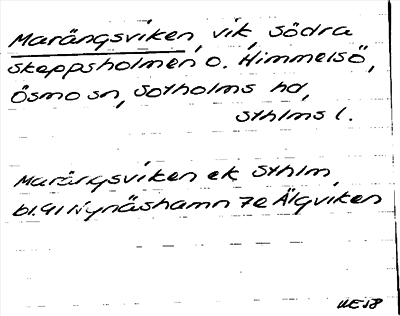 Marängsviken, vik, Södra
Skeppsholmen o. Himmelsö,
Ösmo sn, Sotholms hd,
Sthlms l.
Marängsviken ek Sthlm,
bl. 91 Nynäshamn 7e Älgviken